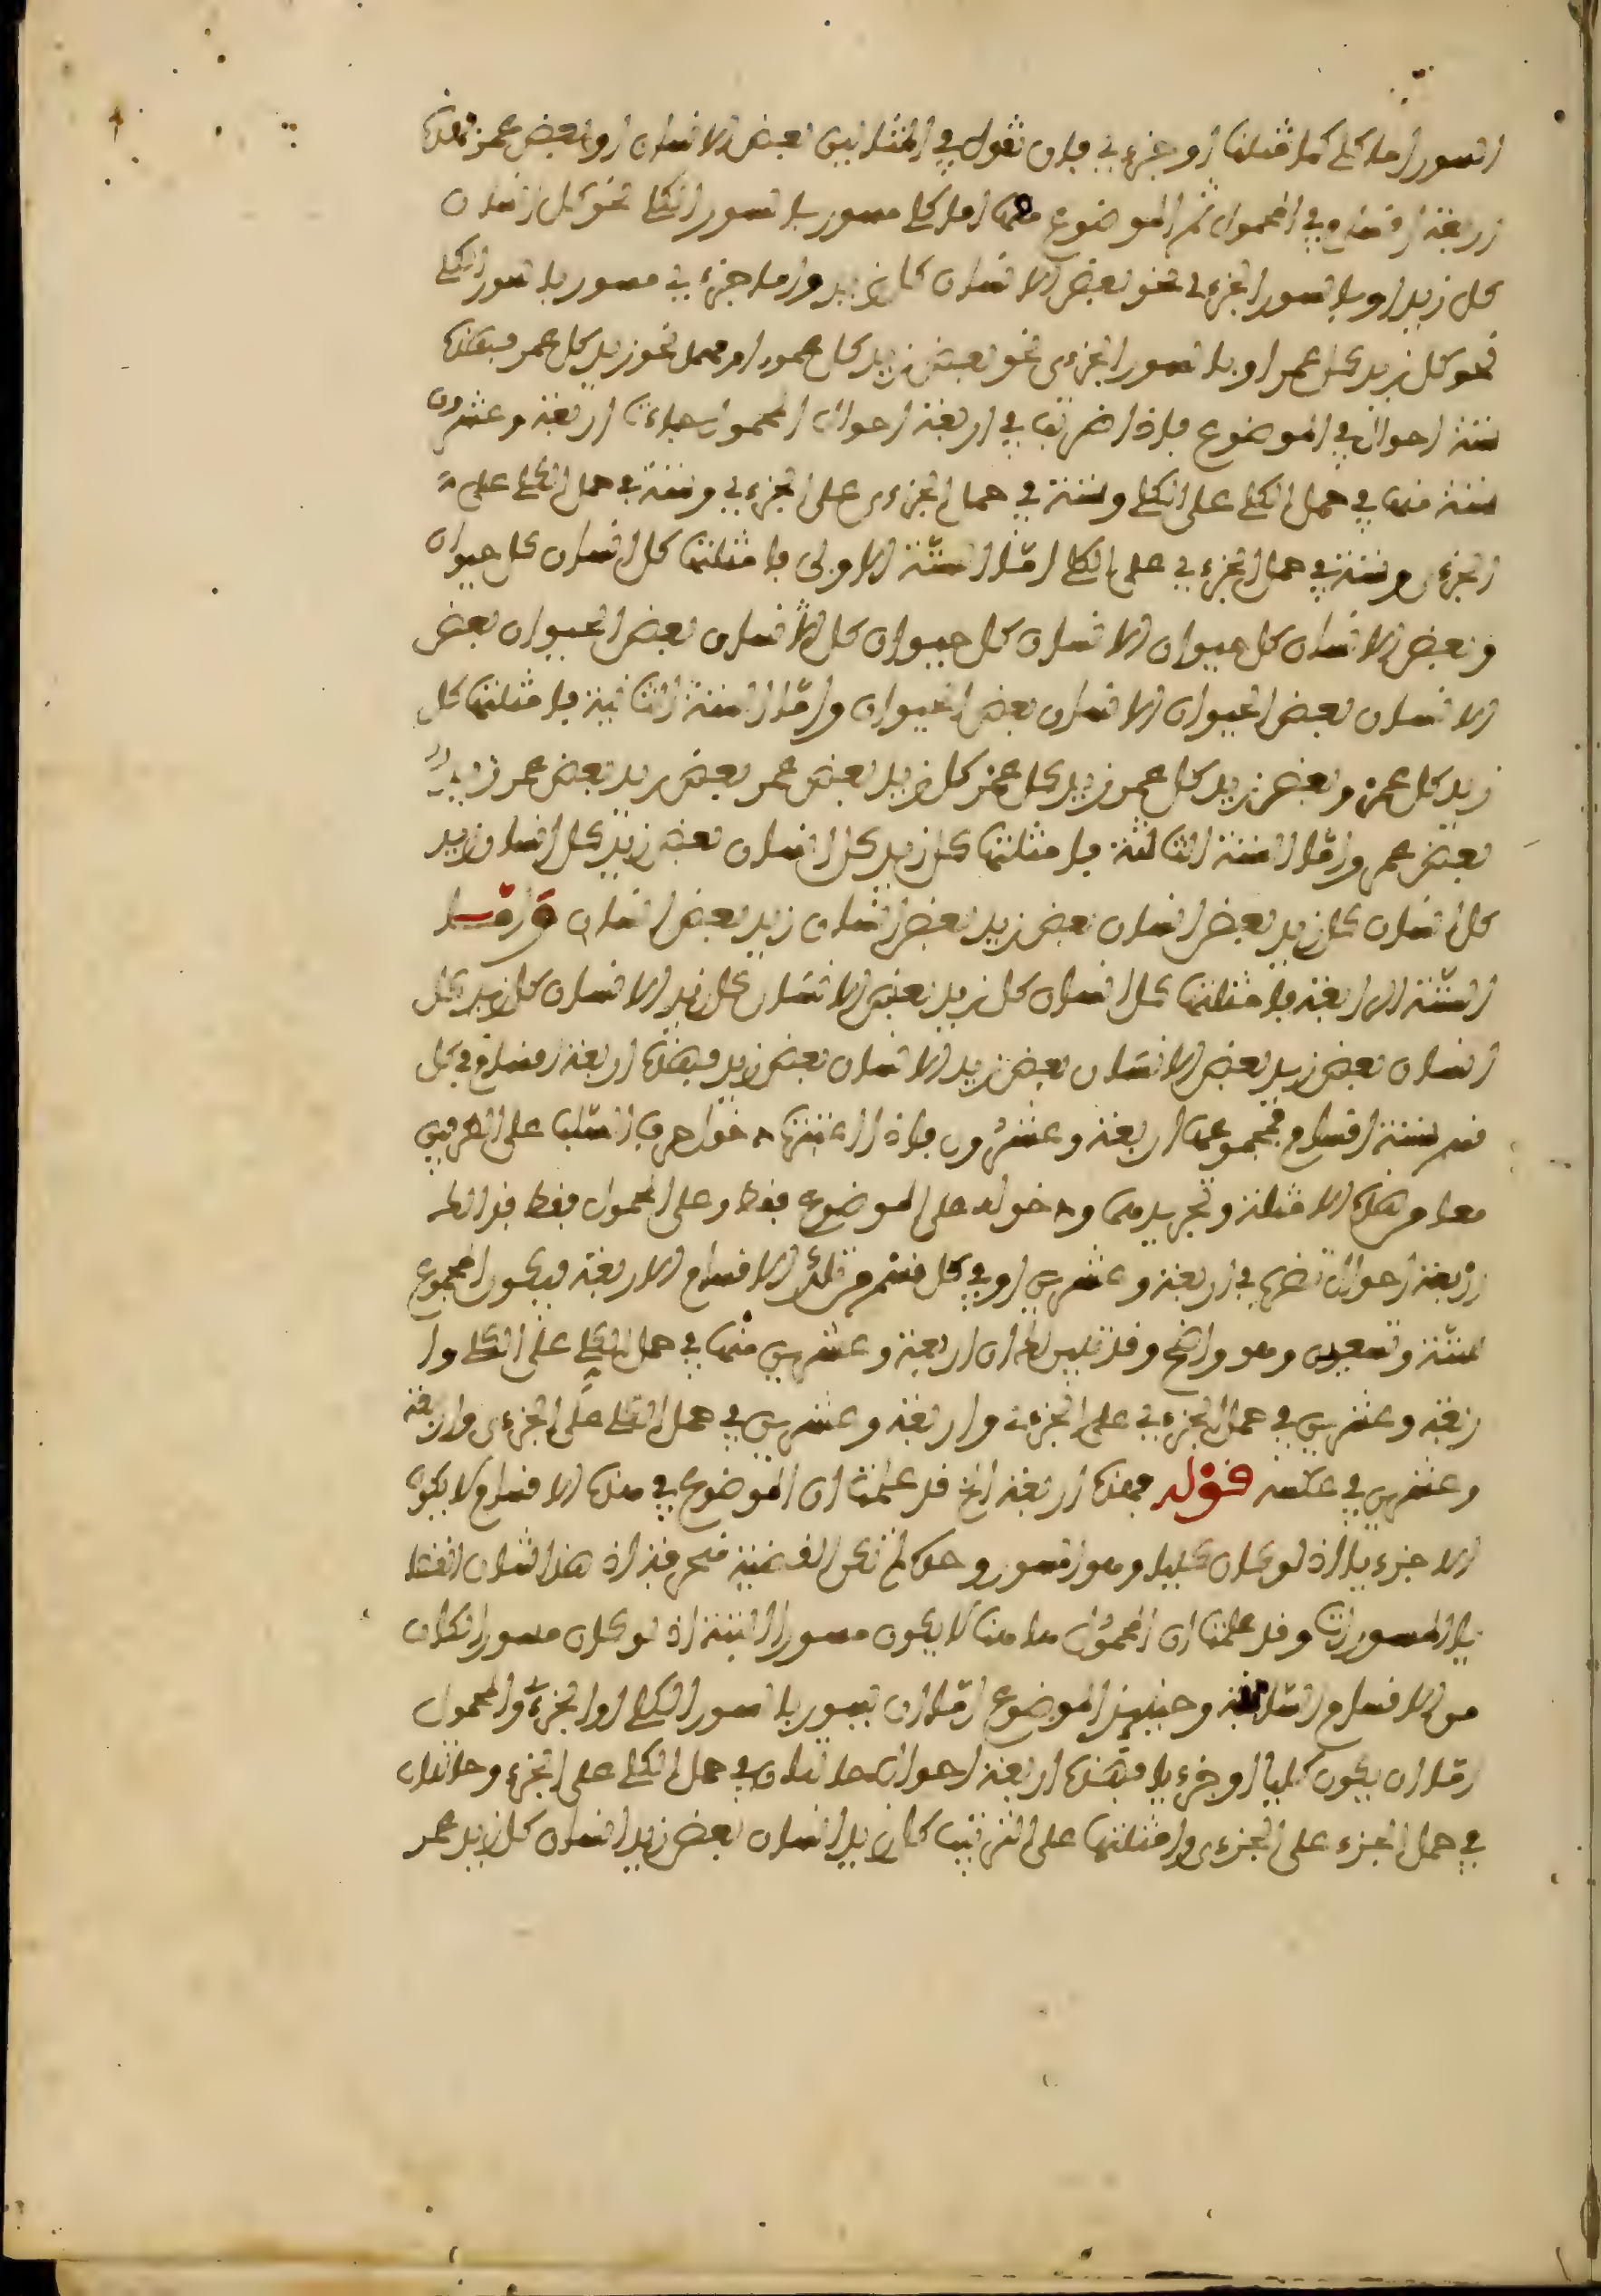 السور اما كلي كما مثلنا او جزءي بان تقول في المثالين بعض الانسان او بعض عمر فهذه
اربعة اقسام في المحمول ثم الموضوع معها اما كلي مسور بالسور الكلي نحو كل انسان
كل زيد او بالسور الجزءي نحو بعض الانسان كل زيد واما جزءي مسور بالسور الكلي
نحو كل زيد كل عمر او بالسور الجزءي نحو بعض زيد كل عمر او مهمل نحو زيد كل عمر فهذه
ستة احوال في الموضوع فاذا ضربت في اربعة احوال المحمول جاءت اربعة وعشرون
ستة منها في حمل الكلي على الكلي وستة في حمل الجزءي على الجزءي وستة في حمل الكلي على
الجزءي وستة في حمل الجزءي على الكلي اما الستة الاولى فامثلتها كل انسان كل حيوان
وبعض الانسان كل حيوان الانسان كل حيوان كل الانسان بعض الحيوان بعض
الانسان بعض الحيوان الانسان بعض الحيوان واما الستة الثانية فامثلتها كل
زيد كل عمر وبعض زيد كل عمر زيد كل عمر كل زيد بعض عمر بعض زيد بعض عمر زيد
بعض عمر واما الستة الثالثة فامثلتها كل زيد كل انسان بعض زيد كل انسان زيد
كل انسان كل زيد بعض انسان بعض زيد بعض انسان زيد بعض انسان واما
الستة الرابعة فامثلتها كل انسان كل زيد بعض الانسان كل زيد الانسان كل زيد كل
انسان بعض زيد بعض الانسان بعض زيد الانسان بعض زيد فهذه اربعة اقسام في كل
قسم ستة اقسام فمجموعها اربعة وعشرون فاذا اعتبرت دخول حرف السلب على الطرفين
معا وهذه الامثلة وتجريدهما ودخوله على الموضوع فقط وعلى المحمول فقط فذلك
اربعة احوال تضرب في اربعة وعشرين او في كل قسم من تلك الاقسام الاربعة فيكون المجموع
ستة وتسعين وهو واضح وقد تبين لك ان اربعة وعشرين منها في حمل الكلي على الكلي وا
ربعة وعشرين في حمل الجزءي على الجزءي واربعة وعشرين في حمل الكلي على الجزءي واربعة
وعشرين في عكسه قوله فهذه اربعة الخ قد علمت ان الموضوع في هذه الاقسام لا يكون
الا جزءيا اذ لو كان كليا وهو المسور وحده لم تكن القضية منحرفة اذ هذا شان القضا
يا المسورات وقد علمت ان المحمول هاهنا لا يكون مسورا البتة اذ لو كان مسورا لكان
من الاقسام السالفة وحينئذ الموضوع اما ان يسور بالسور الكلي او الجزءي والمحمول
اما ان يكون كليا او جزءيا فهذه اربعة احوال حالتان في حمل الكلي على الجزءي وحالتان
في حمل الجزء على الجزءي وامثلتها على الترتيب كل زيد انسان بعض زيد انسان كل زيد عمر